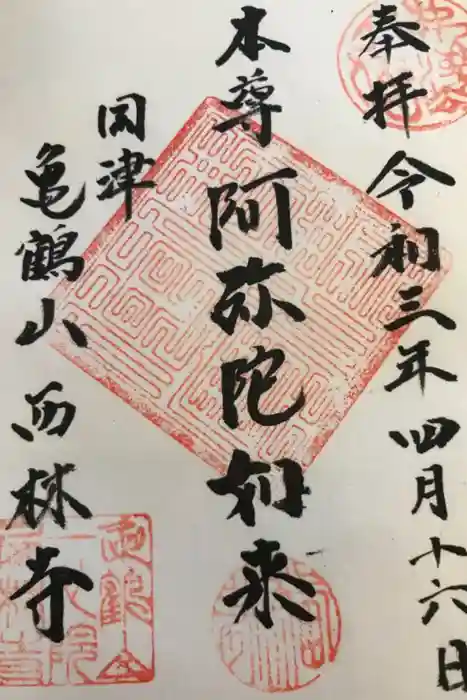 奉拝 令和三年四月十六日
本尊 阿弥陀如来
国津
亀鶴山 西林寺